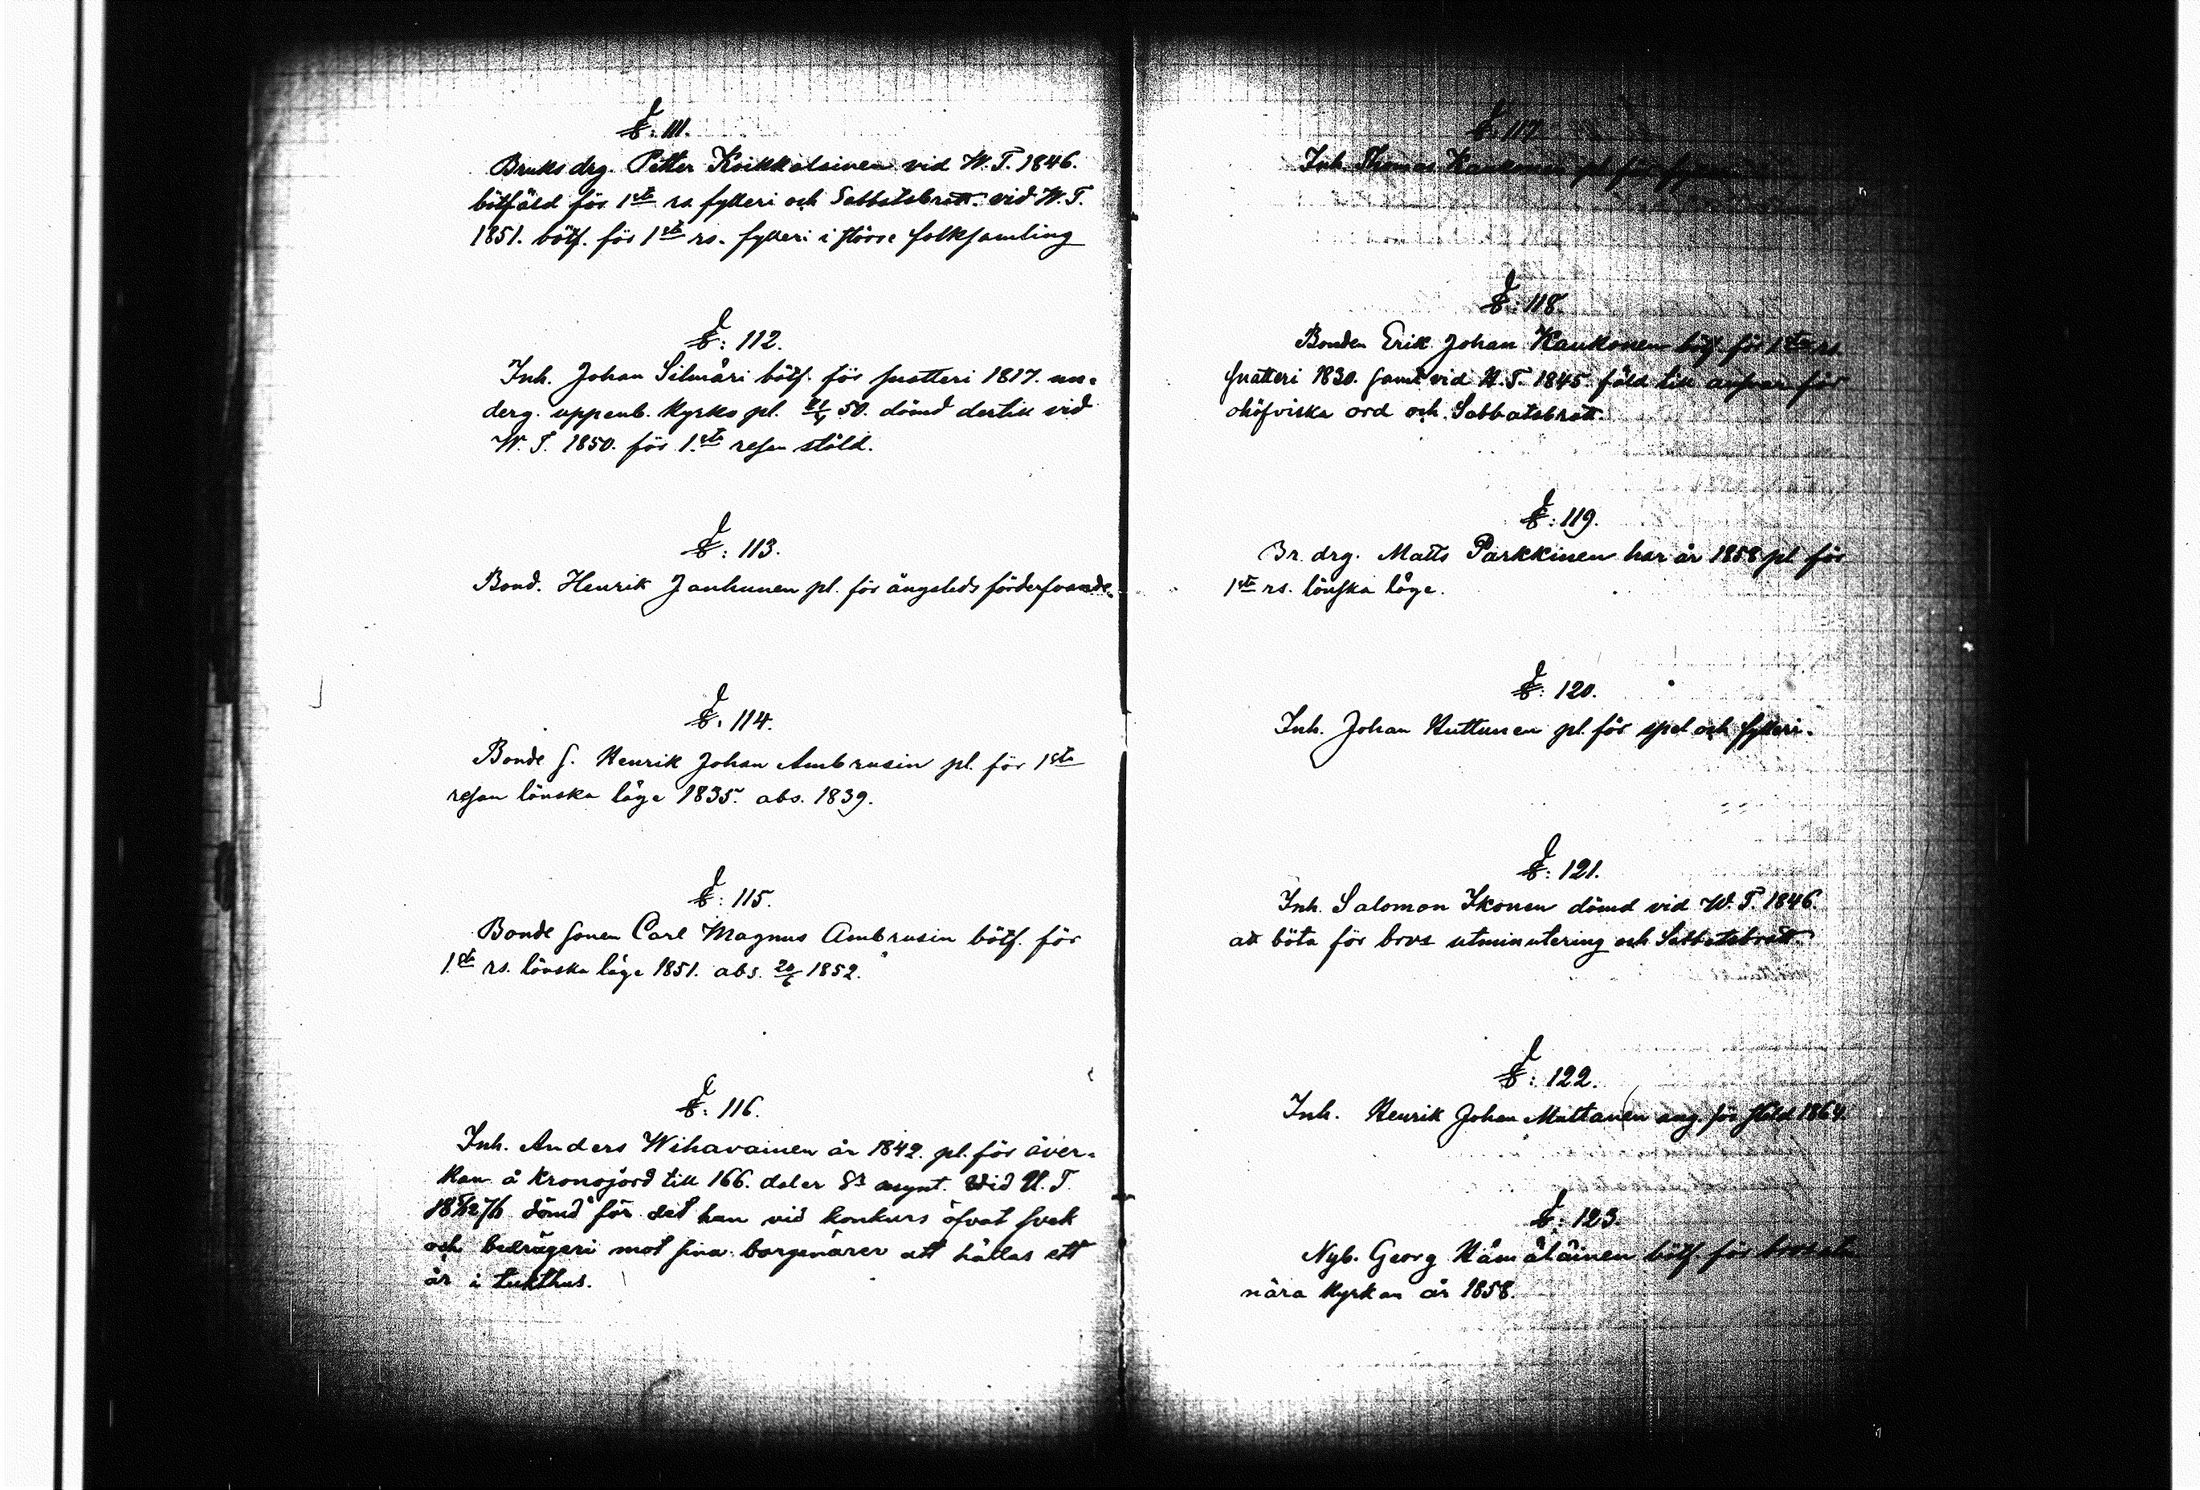 §: 111.
Bruks drg. Petter Koikkalainen vid W. T. 1846.
bötfäld för 1sta rs fylleri och Sabbatsbrott vid W. T.
1851. bötf. för 1sta rs. fylleri i större folksamling
§: 112.
Inh. Johan Silmäri bötf. för snatteri 1817. un-
derg. uppenb. kyrko pl. 21/4 50. dömd dertill vid
W. T. 1850. för 1sta resan stöld.
§: 113.
Bond. Henrik Janhunen pl. för ängsleds förderfvande.
§: 114.
Bonde s. Henrik Johan Ambrusin pl. för 1sta
resan lönska läge 1835. abs. 1839.
§: 115.
Bonde sonen Carl Magnus Ambrusin bötf. för
1sta rs. lönska läge 1851. abs. 20/6 1852.
§: 116.
Inh. Anders Wihavainen år 1842. pl. för åver-
kan å kronojord till 166. daler Sr mynt. Wid U. T.
dömd för det han vid konkurs öfvat svek
och bedrägeri mot sina borgenärer att hållas ett
år i tukthus.
§: 117.
Inh. Thomas Kaukonen pl. för
§: 118.
Bonden Erik Johan Kaukonen bötf. för 1sta rs
snatteri 1830. samt vid H. T. 1845. fäld till ansvar för
ohöfviska ord och Sabbatsbrott.
§: 119.
Br. drg. Matts Parkkinen har år 1858 pl. för
1sta rs. lönska läge.
§: 120.
Inh. Johan Huttunen pl. för spel och fylleri.
§: 121.
Inh. Salomon Ikonen dömd vid W. T. 1846.
att böta för brvs utminutering och Sabbatsbrott.
§: 122.
Inh. Henrik Johan Muttanen ang. för stöld 1864.
§: 123.
Nyb. Georg Hämäläinen bötf. för
nära kyrkan år 1858.